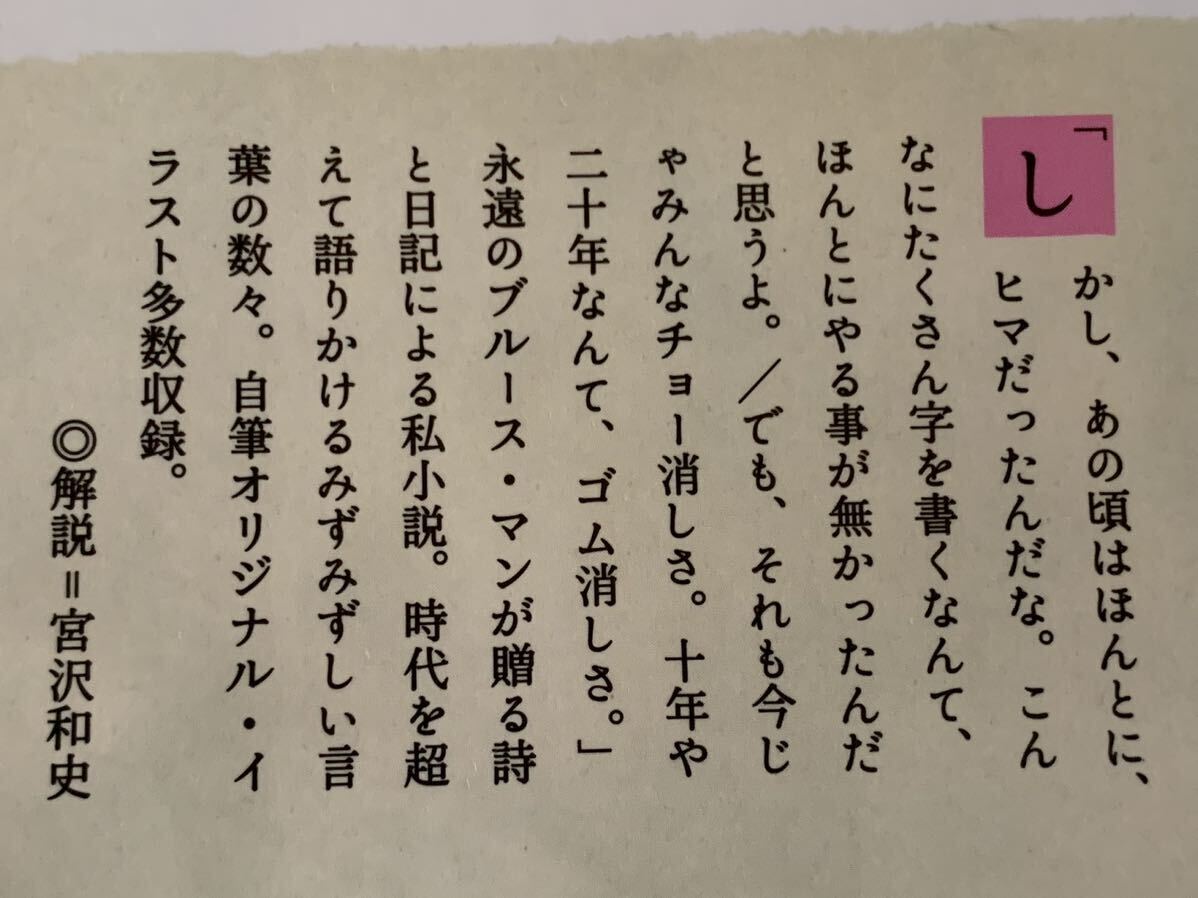 「しかし、あの頃はほんとに、
ヒマだったんだな。こん
なにたくさん字を書くなんて、
ほんとにやる事が無かったんだ
と思うよ。／でも、それも今じ
ゃみんなチョー消しさ。十年や
二十年なんて、ゴム消しさ。」
永遠のブルース・マンが贈る詩
と日記による私小説。時代を超
えて語りかけるみずみずしい言
葉の数々。自筆オリジナル・イ
ラスト多数収録。
◎解説＝宮沢和史